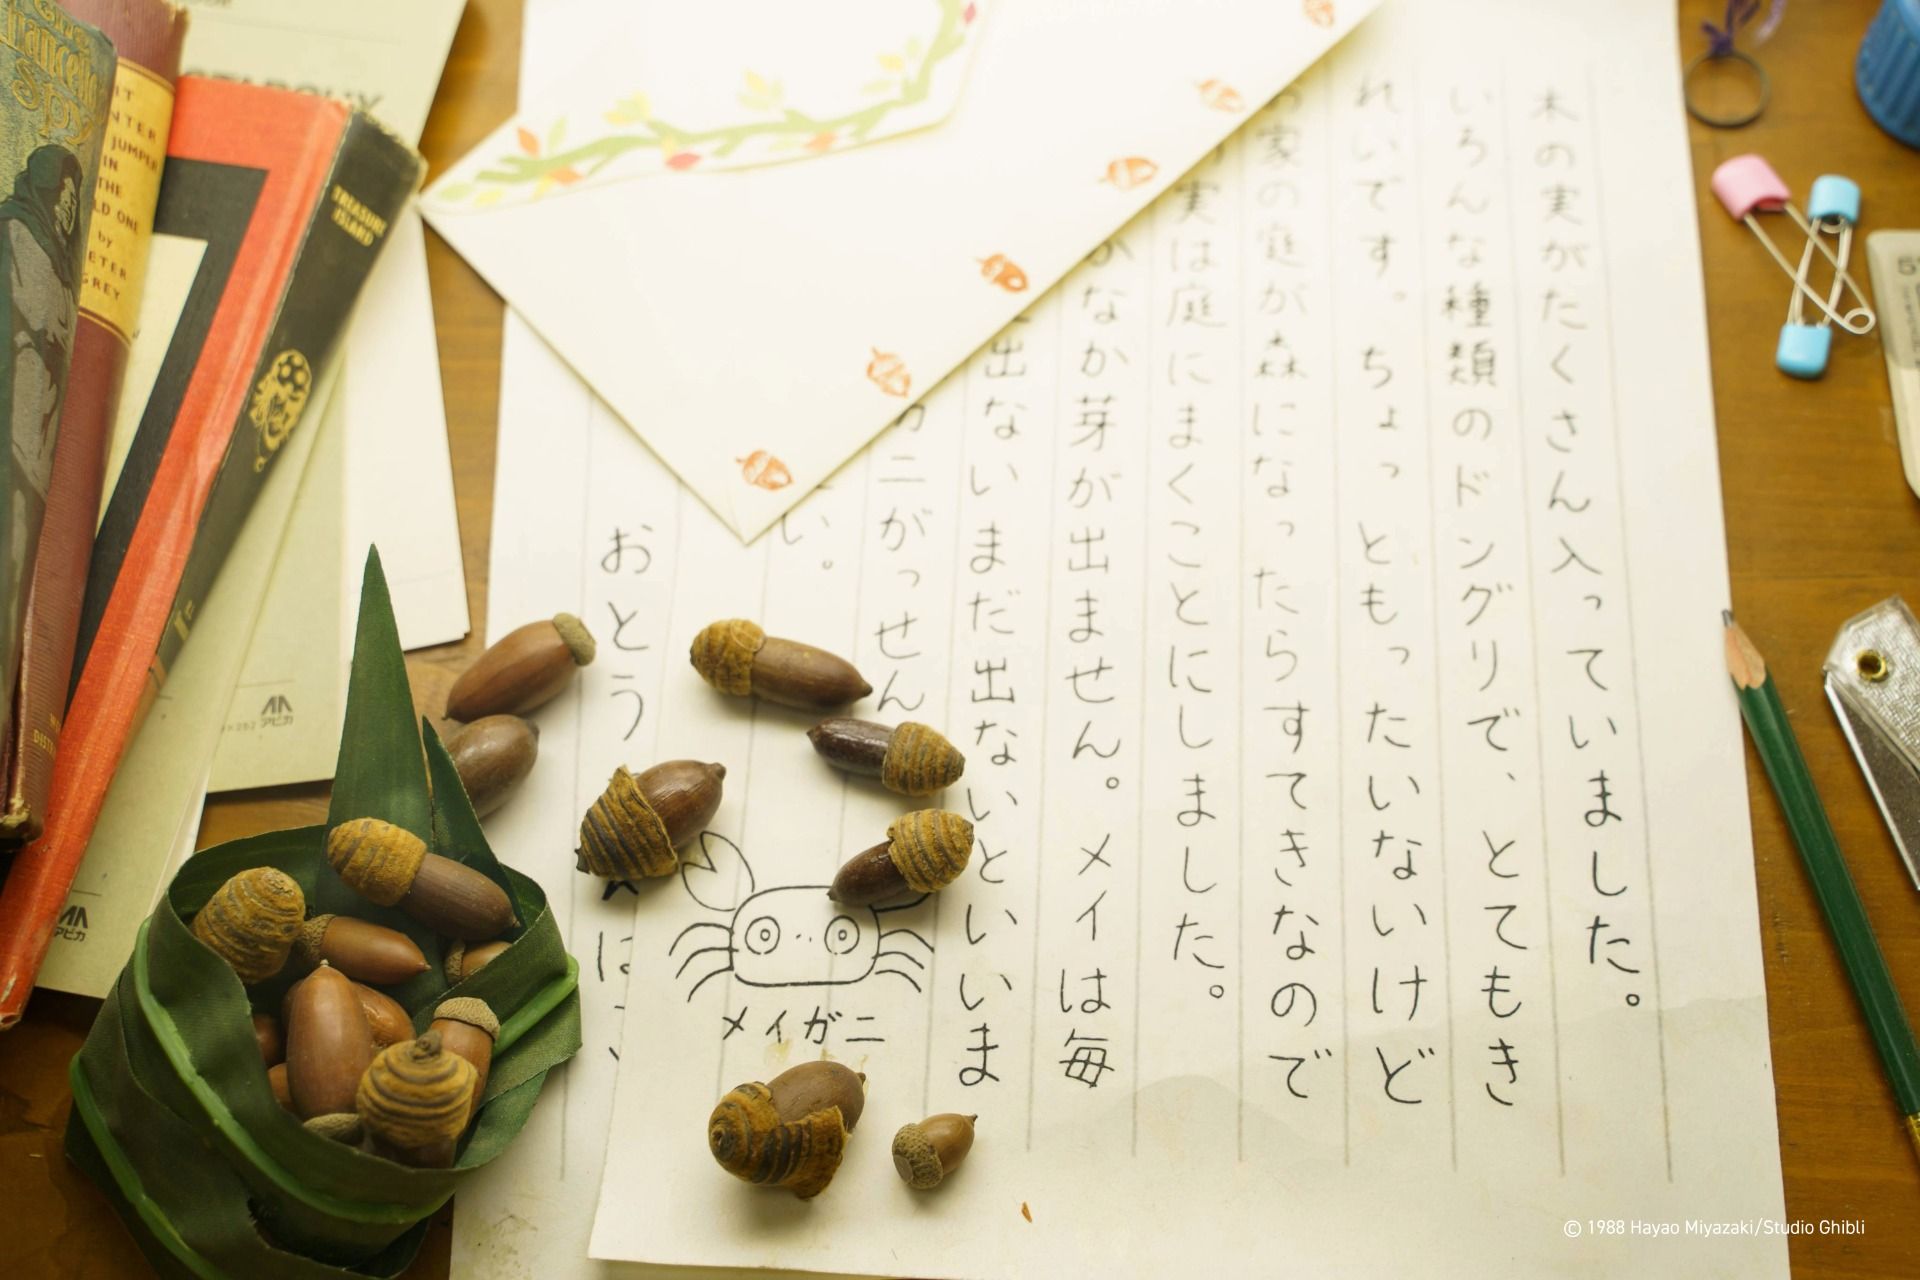 木の実がたくさん入っていました。
いろんな種類のドングリで、とてもき
れいです。ちょっともったいないけど
家の庭が森になったらすてきなので
実は庭にまくことにしました。
かなか芽が出ません。メイは毎
出ないまだ出ないといいま
カニがっせん
い。
おとう
メイガニ
TREASURE
ISLAND
JUMPER
IN
THE
by
GREY
アピカ
アピカ
© 1988 Hayao Miyazaki/Studio Ghibli